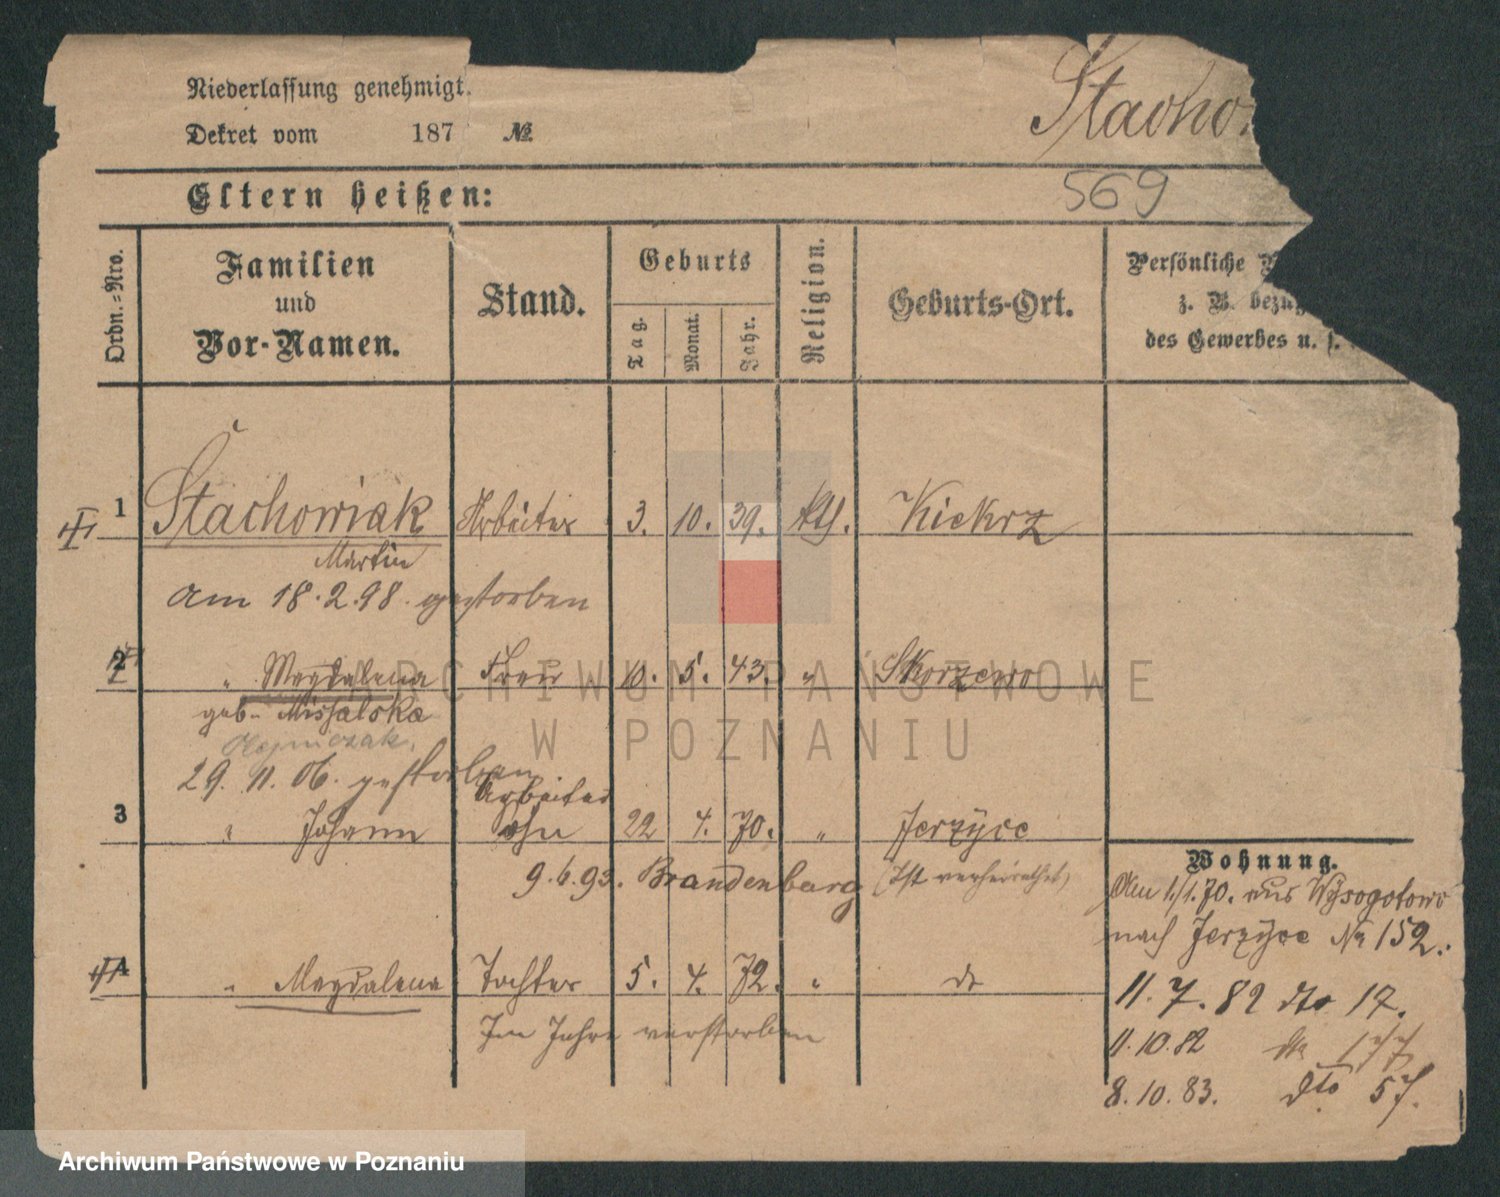 Niederlassung genehmigt.
Dekret vom 187 №.
Stacho
Eltern heißen:
569
Ordn.-Nro.
Familien
und
Vor-Namen.
Stand.
Geburts
Tag.
Monat.
Jahr.
Religion.
Geburts-Ort.
Persönliche
z. B. bezug
des Gewerbes u. s.
1 Stachowiak Arbeiter 3. 10. 39. kth. Kiekrz
Martin
am 18.2.98. gestorben
2 " Magdalena Frau 10. 5. 43. " Skorzewo
geb. Missalska
29. 11. 06. gestorben
Arbeiter
3 " Johann 22 4. 70. " Jerzyce
9.6.93. Brandenburg (Ist verheirathet)
" Magdalena Tochter 5. 4. 72. " do
Im Jahre verstorben
Wohnung.
Am 1./1.70. aus Wysogotowo
nach Jerzyce No 152.
11. 7. 82 dto 17.
11.10.82 do 177
8.10.83. dto 57.
ARCHIWUM PAŃSTWOWE
W POZNANIU
Archiwum Państwowe w Poznaniu